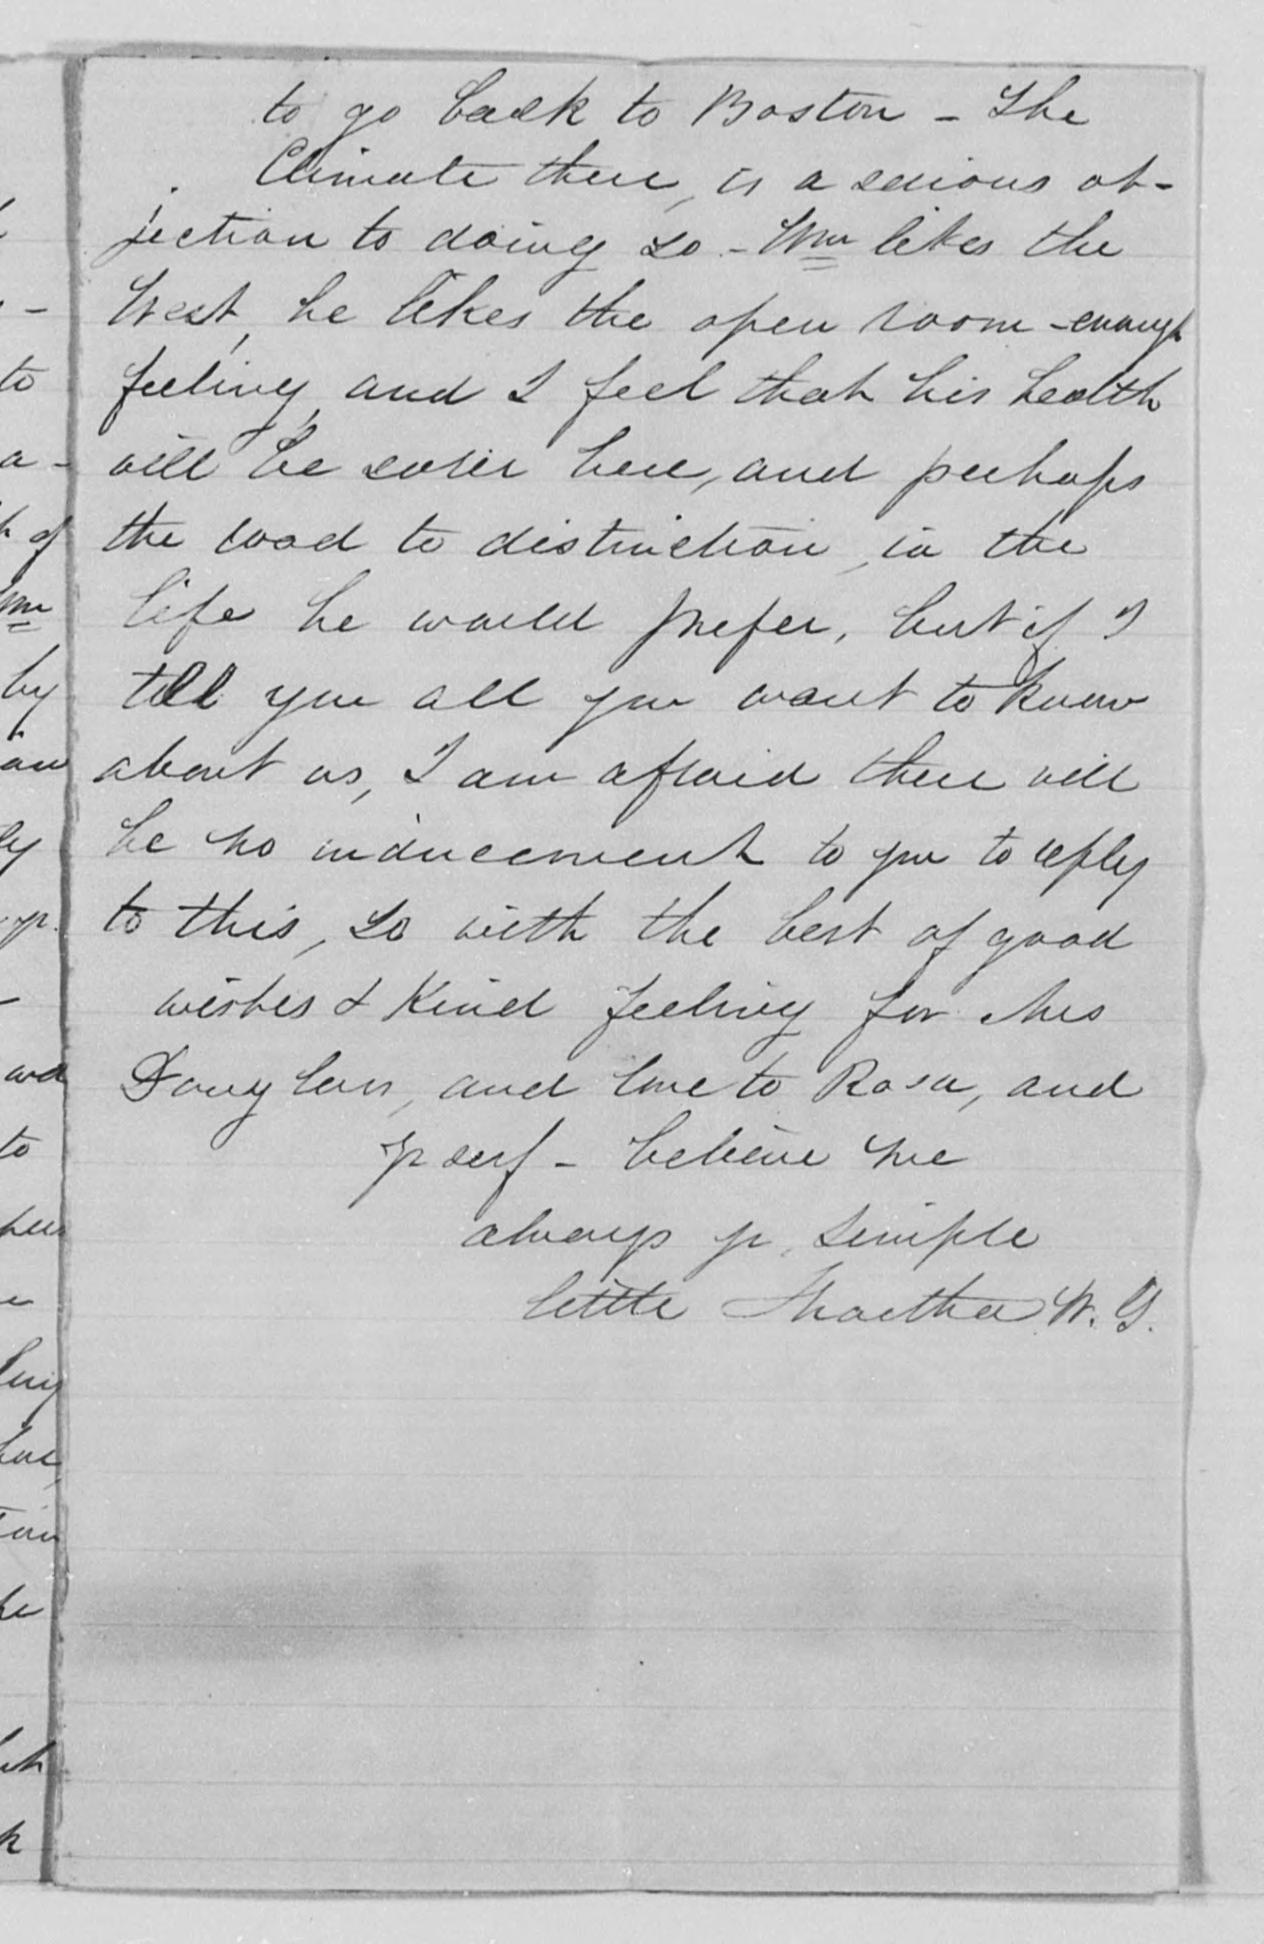 to go back to Boston - The
Climate there, is a serious ob-
jection to doing so - Wm likes the
West, he likes the open room-enough
feeling, and I feel that his health
will be surer here, and perhaps
the road to distinction, in the
life he would prefer, but if I
tell you all you want to know
about us, I am afraid there will
be no inducement to you to reply
to this, so with the best of good
wishes & kind feeling for Mrs
Douglass, and love to Rosa, and
yr self - believe me
always yr, simple
little Martha W. G.